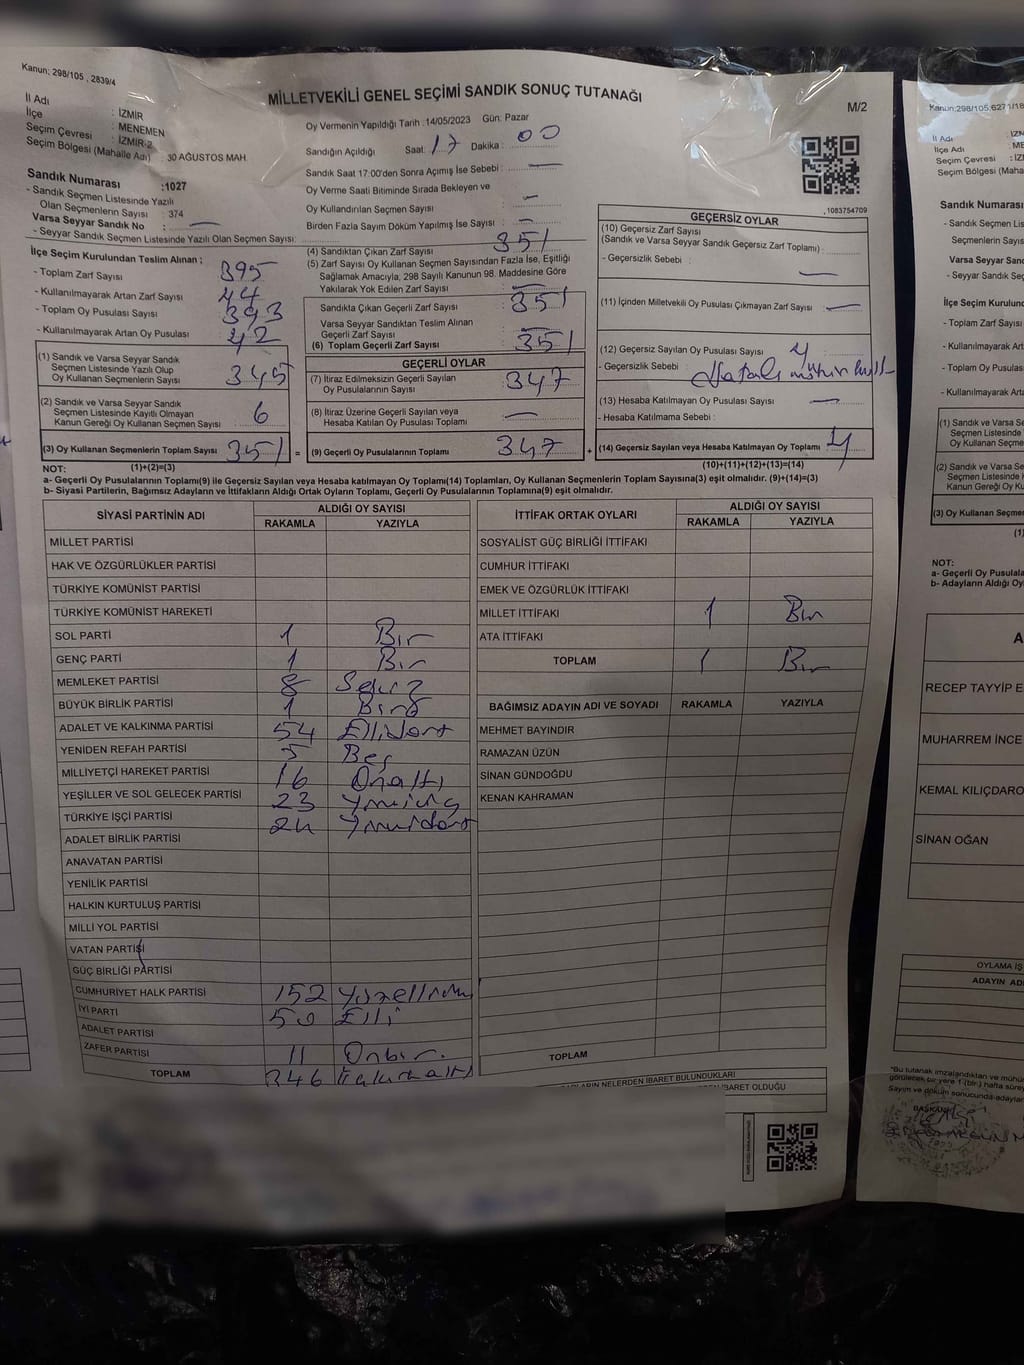 Kanun: 298/105 , 2839/4
MİLLETVEKİLİ GENEL SEÇİMİ SANDIK SONUÇ TUTANAĞI
M/2
İl Adı : İZMİR
İlçe : MENEMEN
Seçim Çevresi : İZMİR-2
Seçim Bölgesi (Mahalle Adı) : 30 AĞUSTOS MAH.
Sandık Numarası :1027
- Sandık Seçmen Listesinde Yazılı
Olan Seçmenlerin Sayısı : 374
Varsa Seyyar Sandık No : —
- Seyyar Sandık Seçmen Listesinde Yazılı Olan Seçmen Sayısı:
Oy Vermenin Yapıldığı Tarih :14/05/2023 Gün: Pazar
Sandığın Açıldığı Saat: 17 Dakika : 00
Sandık Saat 17:00'den Sonra Açımış İse Sebebi : —
Oy Verme Saati Bitiminde Sırada Bekleyen ve
Oy Kullandırılan Seçmen Sayısı : —
Birden Fazla Sayım Döküm Yapılmış İse Sayısı : —
1083754709
İlçe Seçim Kurulundan Teslim Alınan ;
- Toplam Zarf Sayısı : 395
- Kullanılmayarak Artan Zarf Sayısı : 44
- Toplam Oy Pusulası Sayısı : 393
- Kullanılmayarak Artan Oy Pusulası : 42
(1) Sandık ve Varsa Seyyar Sandık
Seçmen Listesinde Yazılı Olup
Oy Kullanan Seçmenlerin Sayısı : 345
(2) Sandık ve Varsa Seyyar Sandık
Seçmen Listesinde Kayıtlı Olmayan
Kanun Gereği Oy Kullanan Seçmen Sayısı : 6
(3) Oy Kullanan Seçmenlerin Toplam Sayısı : 351 =
(1)+(2)=(3)
(4) Sandıktan Çıkan Zarf Sayısı : 351
(5) Zarf Sayısı Oy Kullanan Seçmen Sayısından Fazla İse, Eşitliği
Sağlamak Amacıyla, 298 Sayılı Kanunun 98. Maddesine Göre
Yakılarak Yok Edilen Zarf Sayısı : —
Sandıkta Çıkan Geçerli Zarf Sayısı : 351
Varsa Seyyar Sandıktan Teslim Alınan
Geçerli Zarf Sayısı : —
(6) Toplam Geçerli Zarf Sayısı : 351
GEÇERLİ OYLAR
(7) İtiraz Edilmeksizin Geçerli Sayılan
Oy Pusulalarının Sayısı : 347
(8) İtiraz Üzerine Geçerli Sayılan veya
Hesaba Katılan Oy Pusulası Toplamı : —
(9) Geçerli Oy Pusulalarının Toplamı : 347 +
GEÇERSİZ OYLAR
(10) Geçersiz Zarf Sayısı
(Sandık ve Varsa Seyyar Sandık Geçersiz Zarf Toplamı) :
- Geçersizlik Sebebi : —
(11) İçinden Milletvekili Oy Pusulası Çıkmayan Zarf Sayısı : —
(12) Geçersiz Sayılan Oy Pusulası Sayısı : 4
- Geçersizlik Sebebi : Hatalı mühür
(13) Hesaba Katılmayan Oy Pusulası Sayısı : —
- Hesaba Katılmama Sebebi :
(14) Geçersiz Sayılan veya Hesaba Katılmayan Oy Toplamı : 4
(10)+(11)+(12)+(13)=(14)
NOT:
a- Geçerli Oy Pusulalarının Toplamı(9) ile Geçersiz Sayılan veya Hesaba katılmayan Oy Toplamı(14) Toplamları, Oy Kullanan Seçmenlerin Toplam Sayısına(3) eşit olmalıdır. (9)+(14)=(3)
b- Siyasi Partilerin, Bağımsız Adayların ve İttifakların Aldığı Ortak Oyların Toplamı, Geçerli Oy Pusulalarının Toplamına(9) eşit olmalıdır.
SİYASİ PARTİNİN ADI ALDIĞI OY SAYISI
RAKAMLA YAZIYLA
MİLLET PARTİSİ
HAK VE ÖZGÜRLÜKLER PARTİSİ
TÜRKİYE KOMÜNİST PARTİSİ
TÜRKİYE KOMÜNİST HAREKETİ
SOL PARTİ 1 Bir
GENÇ PARTİ 1 Bir
MEMLEKET PARTİSİ 8 Sekiz
BÜYÜK BİRLİK PARTİSİ 1 Bir
ADALET VE KALKINMA PARTİSİ 54 Ellidört
YENİDEN REFAH PARTİSİ 5 Beş
MİLLİYETÇİ HAREKET PARTİSİ 16 Onaltı
YEŞİLLER VE SOL GELECEK PARTİSİ 23 Yirmiüç
TÜRKİYE İŞÇİ PARTİSİ 24 Yirmidört
ADALET BİRLİK PARTİSİ
ANAVATAN PARTİSİ
YENİLİK PARTİSİ
HALKIN KURTULUŞ PARTİSİ
MİLLİ YOL PARTİSİ
VATAN PARTİSİ
GÜÇ BİRLİĞİ PARTİSİ
CUMHURİYET HALK PARTİSİ 152 Yüzelliiki
İYİ PARTİ 50 Elli
ADALET PARTİSİ
ZAFER PARTİSİ 11 Onbir.
TOPLAM 346
İTTİFAK ORTAK OYLARI ALDIĞI OY SAYISI
RAKAMLA YAZIYLA
SOSYALİST GÜÇ BİRLİĞİ İTTİFAKI
CUMHUR İTTİFAKI
EMEK VE ÖZGÜRLÜK İTTİFAKI
MİLLET İTTİFAKI 1 Bir
ATA İTTİFAKI
TOPLAM 1 Bir
BAĞIMSIZ ADAYIN ADI VE SOYADI RAKAMLA YAZIYLA
MEHMET BAYINDIR
RAMAZAN ÜZÜN
SİNAN GÜNDOĞDU
KENAN KAHRAMAN
TOPLAM
NELERDEN İBARET BULUNDUKLARI
İBARET OLDUĞU
Kanun:298/105,6271/18
İl Adı : İZM
İlçe Adı : ME
Seçim Çevresi : İZM
Seçim Bölgesi (Maha
Sandık Numarası
- Sandık Seçmen Listesi
Seçmenlerin Sayısı
Varsa Seyyar Sandık
- Seyyar Sandık Seçmen
İlçe Seçim Kurulund
- Toplam Zarf Sayısı
- Kullanılmayarak Artan
- Toplam Oy Pusulası
- Kullanılmayarak Artan
(1) Sandık ve Varsa Se
Seçmen Listesinde
Oy Kullanan Seçme
(2) Sandık ve Varsa Se
Seçmen Listesinde
Kanun Gereği Oy K
(3) Oy Kullanan Seçme
(1)
NOT:
a- Geçerli Oy Pusulala
b- Adayların Aldığı Oy
A
RECEP TAYYİP E
MUHARREM İNCE
KEMAL KILIÇDARO
SİNAN OĞAN
OYLAMA İŞ
ADAYIN ADI
"Bu tutanak imzalandıktan ve mühü
görülecek bir yere 1 (bir) hafta süre
Sayım ve döküm sonucunda adaylar
BAŞKAN